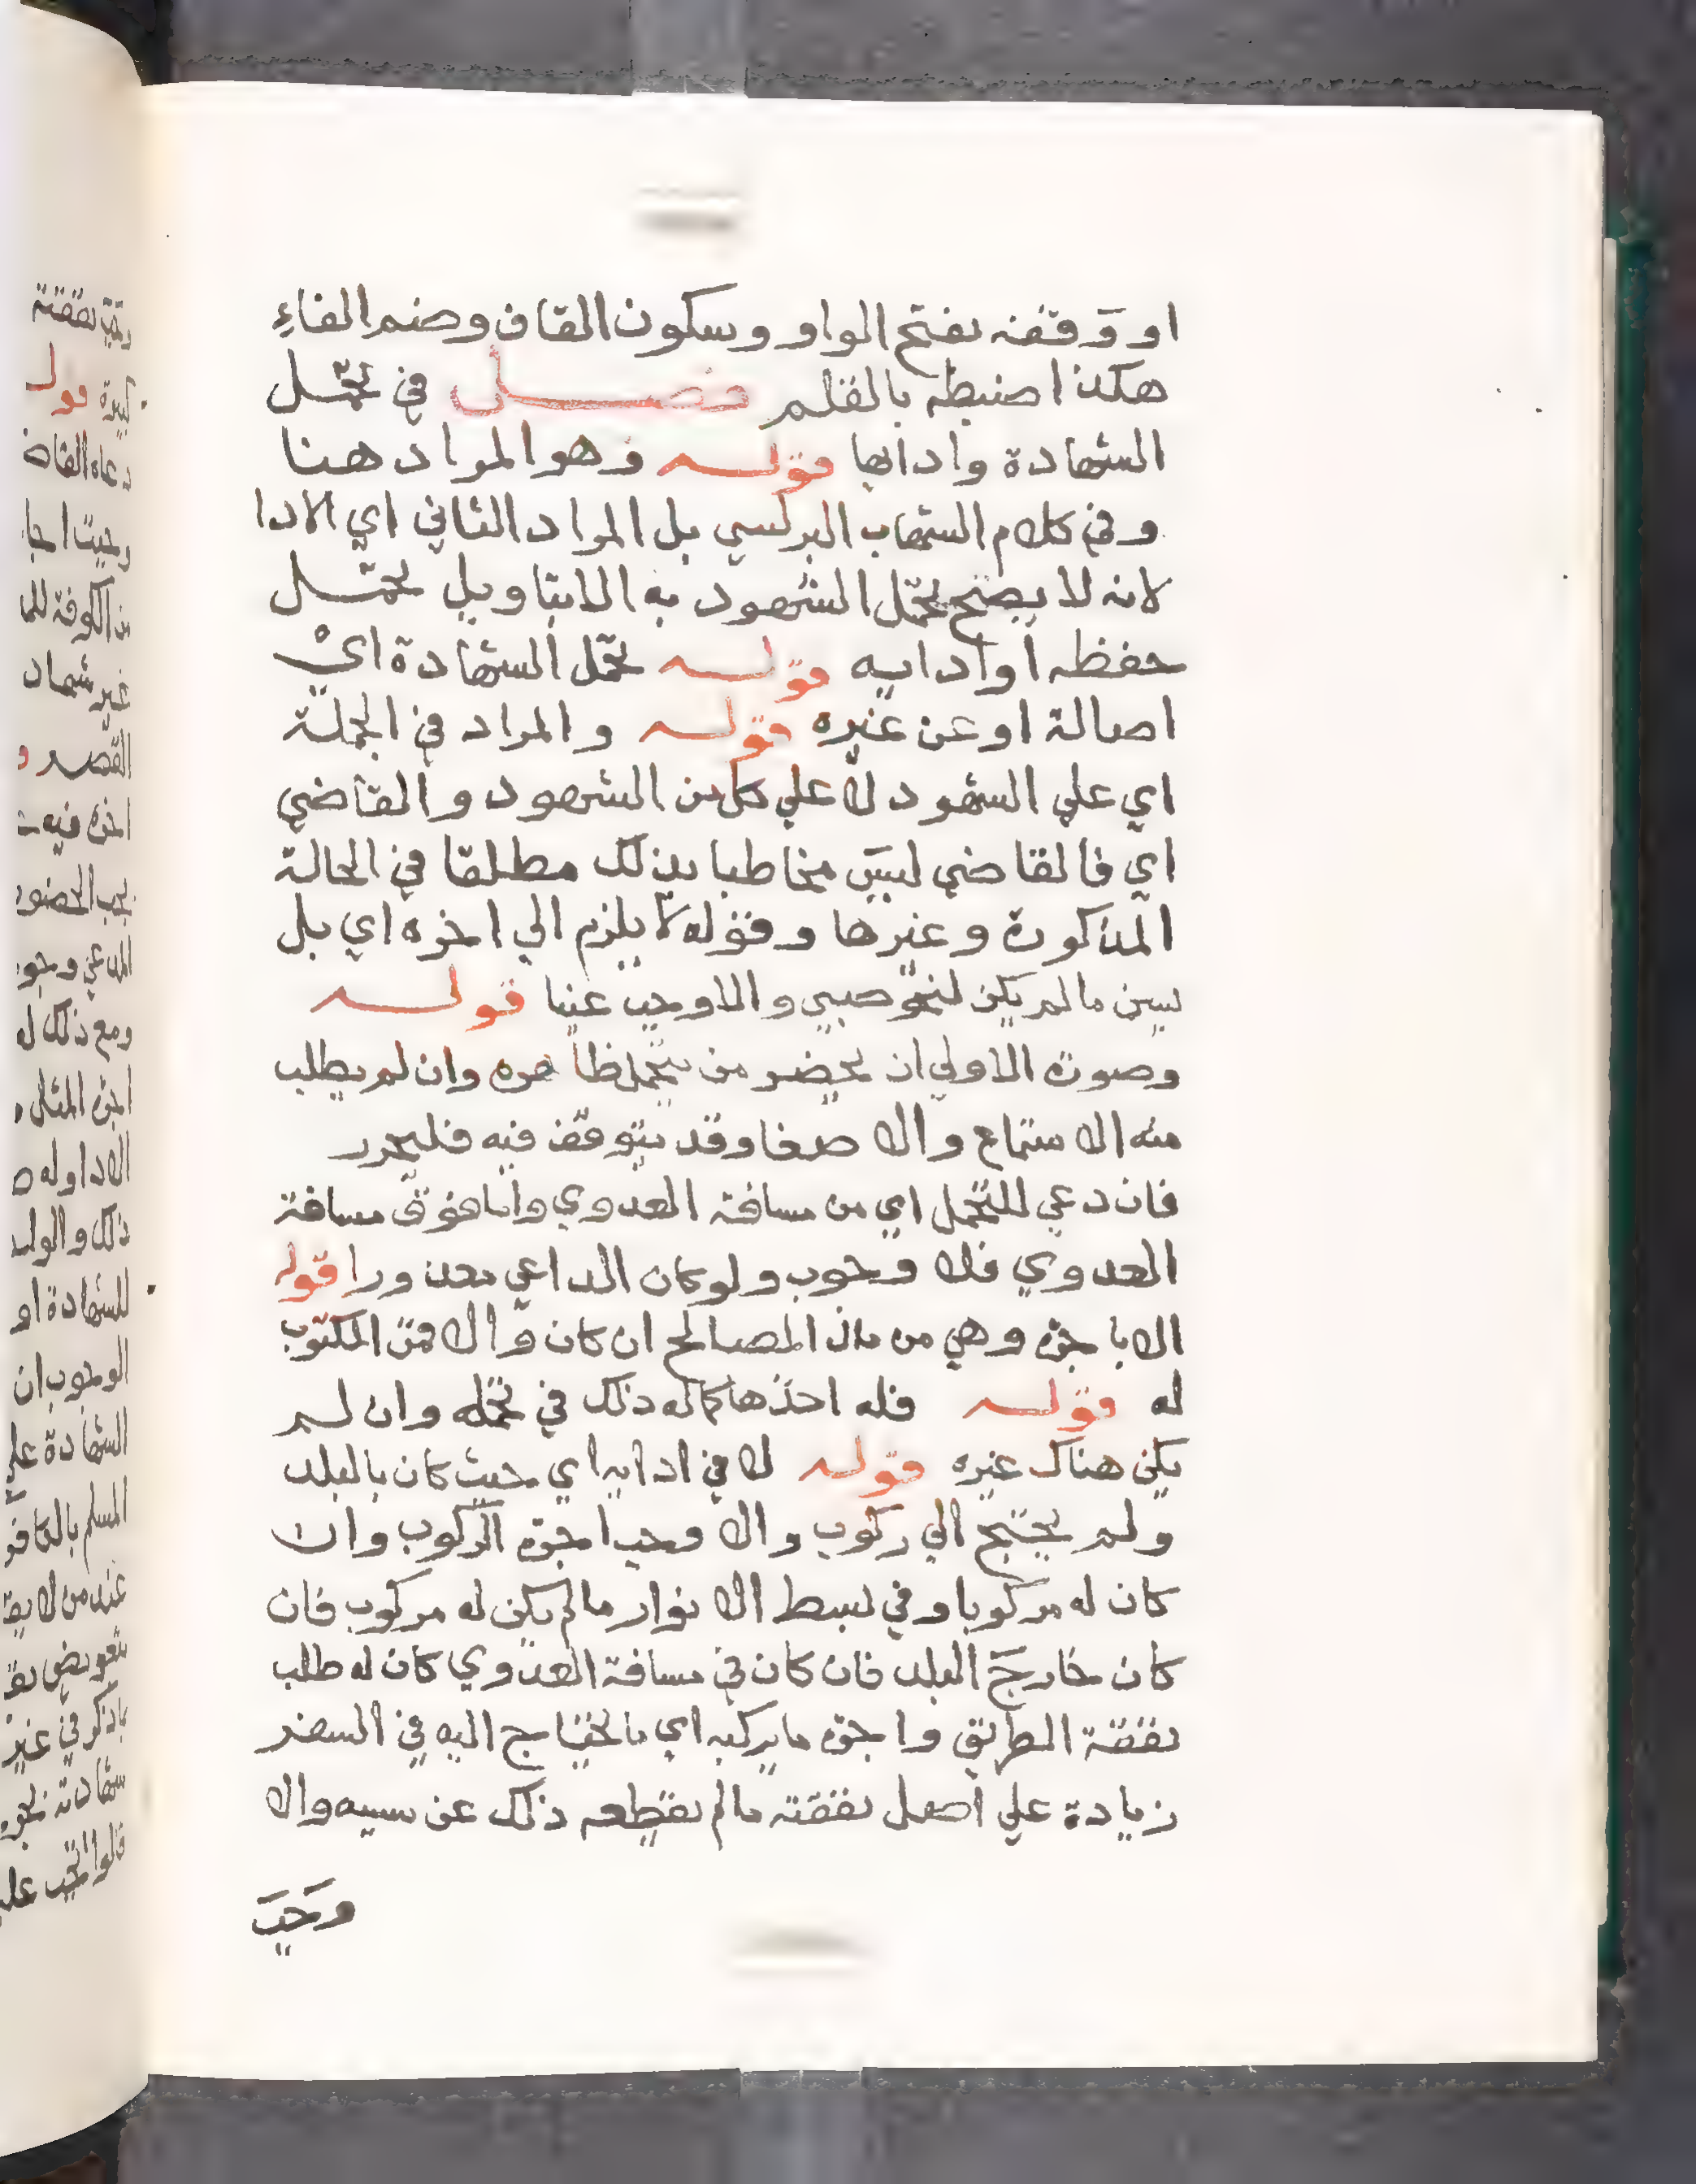 او وَقفه بفتح الواو وسكون القاف وضم الفاءِ
هكذا ضبطه بالقلم فصل في تحمّل
الشهادة وادايها قوله وهو المراد هنا
وفي كلام الشهاب البرلسي بل المراد الثاني اي الادا
لانه لا يصح تحمل الشهود به الا بتاويل تحمّل
حفظه او ادايه قوله تحمّل الشهادة اي
اصالة او عن غيره قوله والمراد في الجملة
اي علي الشهود لا علي كل من الشهود والقاضي
اي فالقاضي ليسَ مخاطبا بذلك مطلقا في الحالة
المذكورة وغيرها وقوله لا يلزم الي اخره اي بل
يسن مالم يكن لنحو صبي والا وجب عنيا قوله
وصورة الاولي ان يحضر من يتحمل ظاهره وان لم يطلب
منه الاستماع والاصغا وقد يتوقف فيه فليحرر
فان دعي للتحمل اي من مسافة العدوي واما فوق مسافة
العدوي فلا وجوب ولو كان الداعي معذورا قوله
الا باجرة وهي من مال المصالح ان كان والا فمن المكتوب
له قوله فله اخذها كما له ذلك في تحمله وان لم
يكن هناك غيره قوله لا في ادايه اي حيث كان بالبلد
ولم يحتج الي ركوب والا وجب اجرة الركوب وان
كان له مركوبا وفي بسط الانوار مالم يكن له مركوب فان
كان خارجَ البلد فان كان في مسافة العدوي كان له طلب
نفقة الطريق واجرة ما يركبه اي ما يحتاج اليه في السفر
زيادة علي اصل نفقته مالم يقطعه ذلك عن سببه والا
وَجَبَ